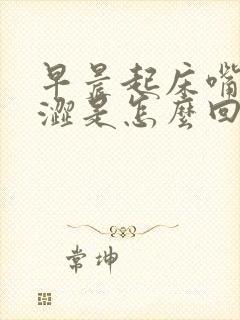 早晨起床嘴
澀是怎麼回
常坤